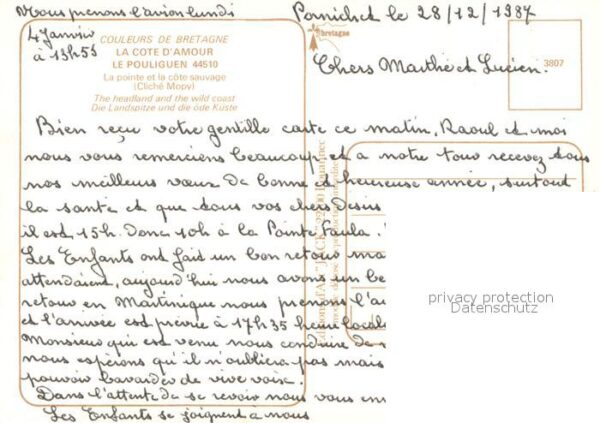 Nous prenons l'avion lundi
4 Janvier
à 13h55
Pornichet le 28/12/1987
COULEURS DE BRETAGNE
LA COTE D'AMOUR
LE POULIGUEN 44510
La pointe et la côte sauvage
(Cliché Mopy)
The headland and the wild coast
Die Landspitze und die öde Küste
bretagne
3807
Chers Marthe et Lucien.
Bien reçu votre gentille carte ce matin, Raoul et moi
nous vous remercions beaucoup et a notre tour recevez tous
nos meilleurs vœux de bonne et heureuse année, surtout
la santé et que tous vos chers désirs
il est 15h. donc 10h à la Pointe Faula.
Les Enfants ont fait un bon retour
attendaient, aujourd'hui nous avons un be
retour en Martinique nous prenons l'a
et l'arrivée est prévue à 17h35 heure locale
Monsieur qui est venu nous conduire de
nous espérons qu'il n'oubliera pas mais
pouvoir bavarder de vive voix.
Dans l'attente de se revoir nous vous em
Les Enfants se joignent à nous
Editions d'Art "JACK"
privacy protection
Datenschutz